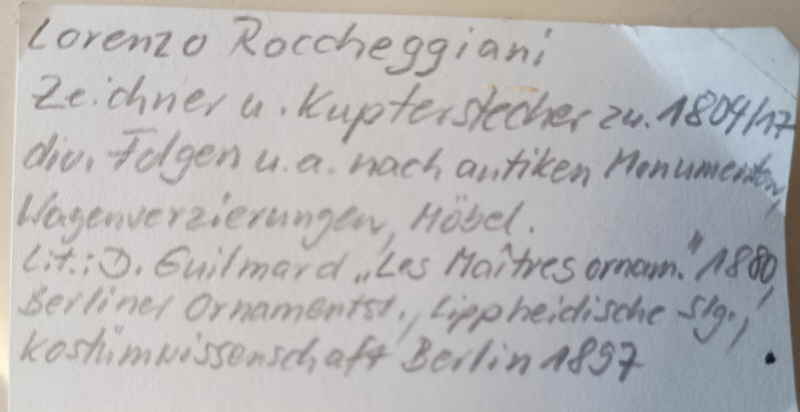 Lorenzo Roccheggiani
Zeichner u. Kupferstecher zw. 1804/17
div. Folgen u.a. nach antiken Monumenten,
Wagenverzierungen, Möbel.
Lit.: D. Guilmard „Les Maîtres ornam." 1880,
Berliner Ornamentst., Lippheidische Slg.,
Kostümwissenschaft Berlin 1897